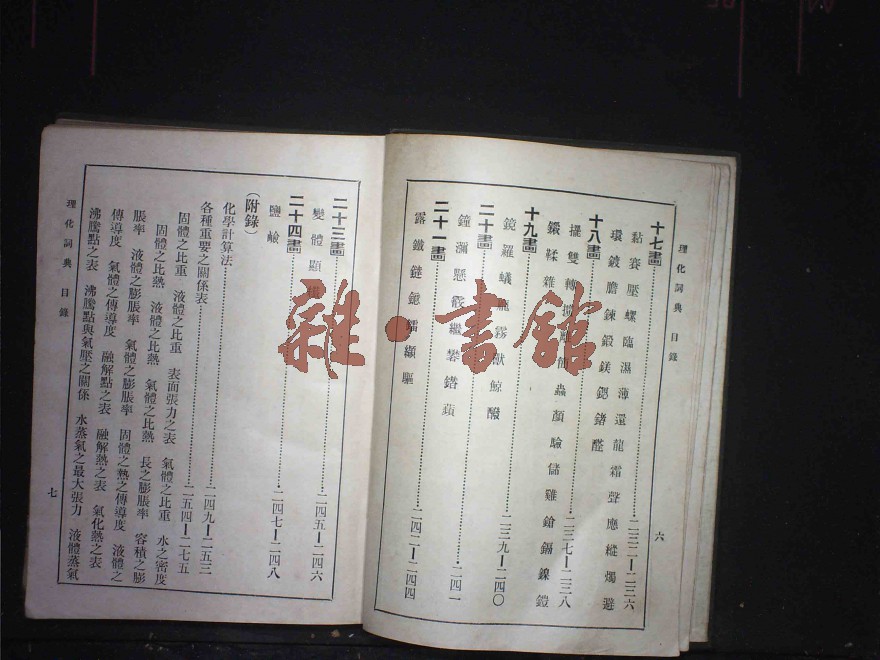 理化詞典 目錄
六
十七畫……二三二—二三六
黏賽壓螺臨濕薄還龍霜聲應縱燭避
環鍍膽鍊鍛鎂鍶鍺醛
十八畫……二三七—二三八
擺雙轉蟲顏驗儲雞鎗鎘鎳鎧
鍛鞣雜
十九畫……二三九—二四〇
鏡羅蟻霧獸鯨醱
二十畫……二四一
鐘瀰懸繼攀鐕蘋
二十一畫……二四二—二四四
露鐵纈驅
二十三畫……二四五—二四六
變體顯
二十四畫……二四七—二四八
鹽鹼
(附錄)
化學計算法……二四九—二五三
各種重要之關係表……二五四—二七五
固體之比重 液體之比重 表面張力之表 氣體之比重 水之密度
固體之比熱 液體之比熱 氣體之比熱 長之膨脹率 容積之膨
脹率 液體之膨脹率 氣體之膨脹率 固體之熱之傳導度 液體之
傳導度 氣體之傳導度 融解點之表 融解熱之表 氣化熱之表
沸騰點之表 沸騰點與氣壓之關係 水蒸氣之最大張力 液體蒸氣
理化詞典 目錄
七
雜·書館